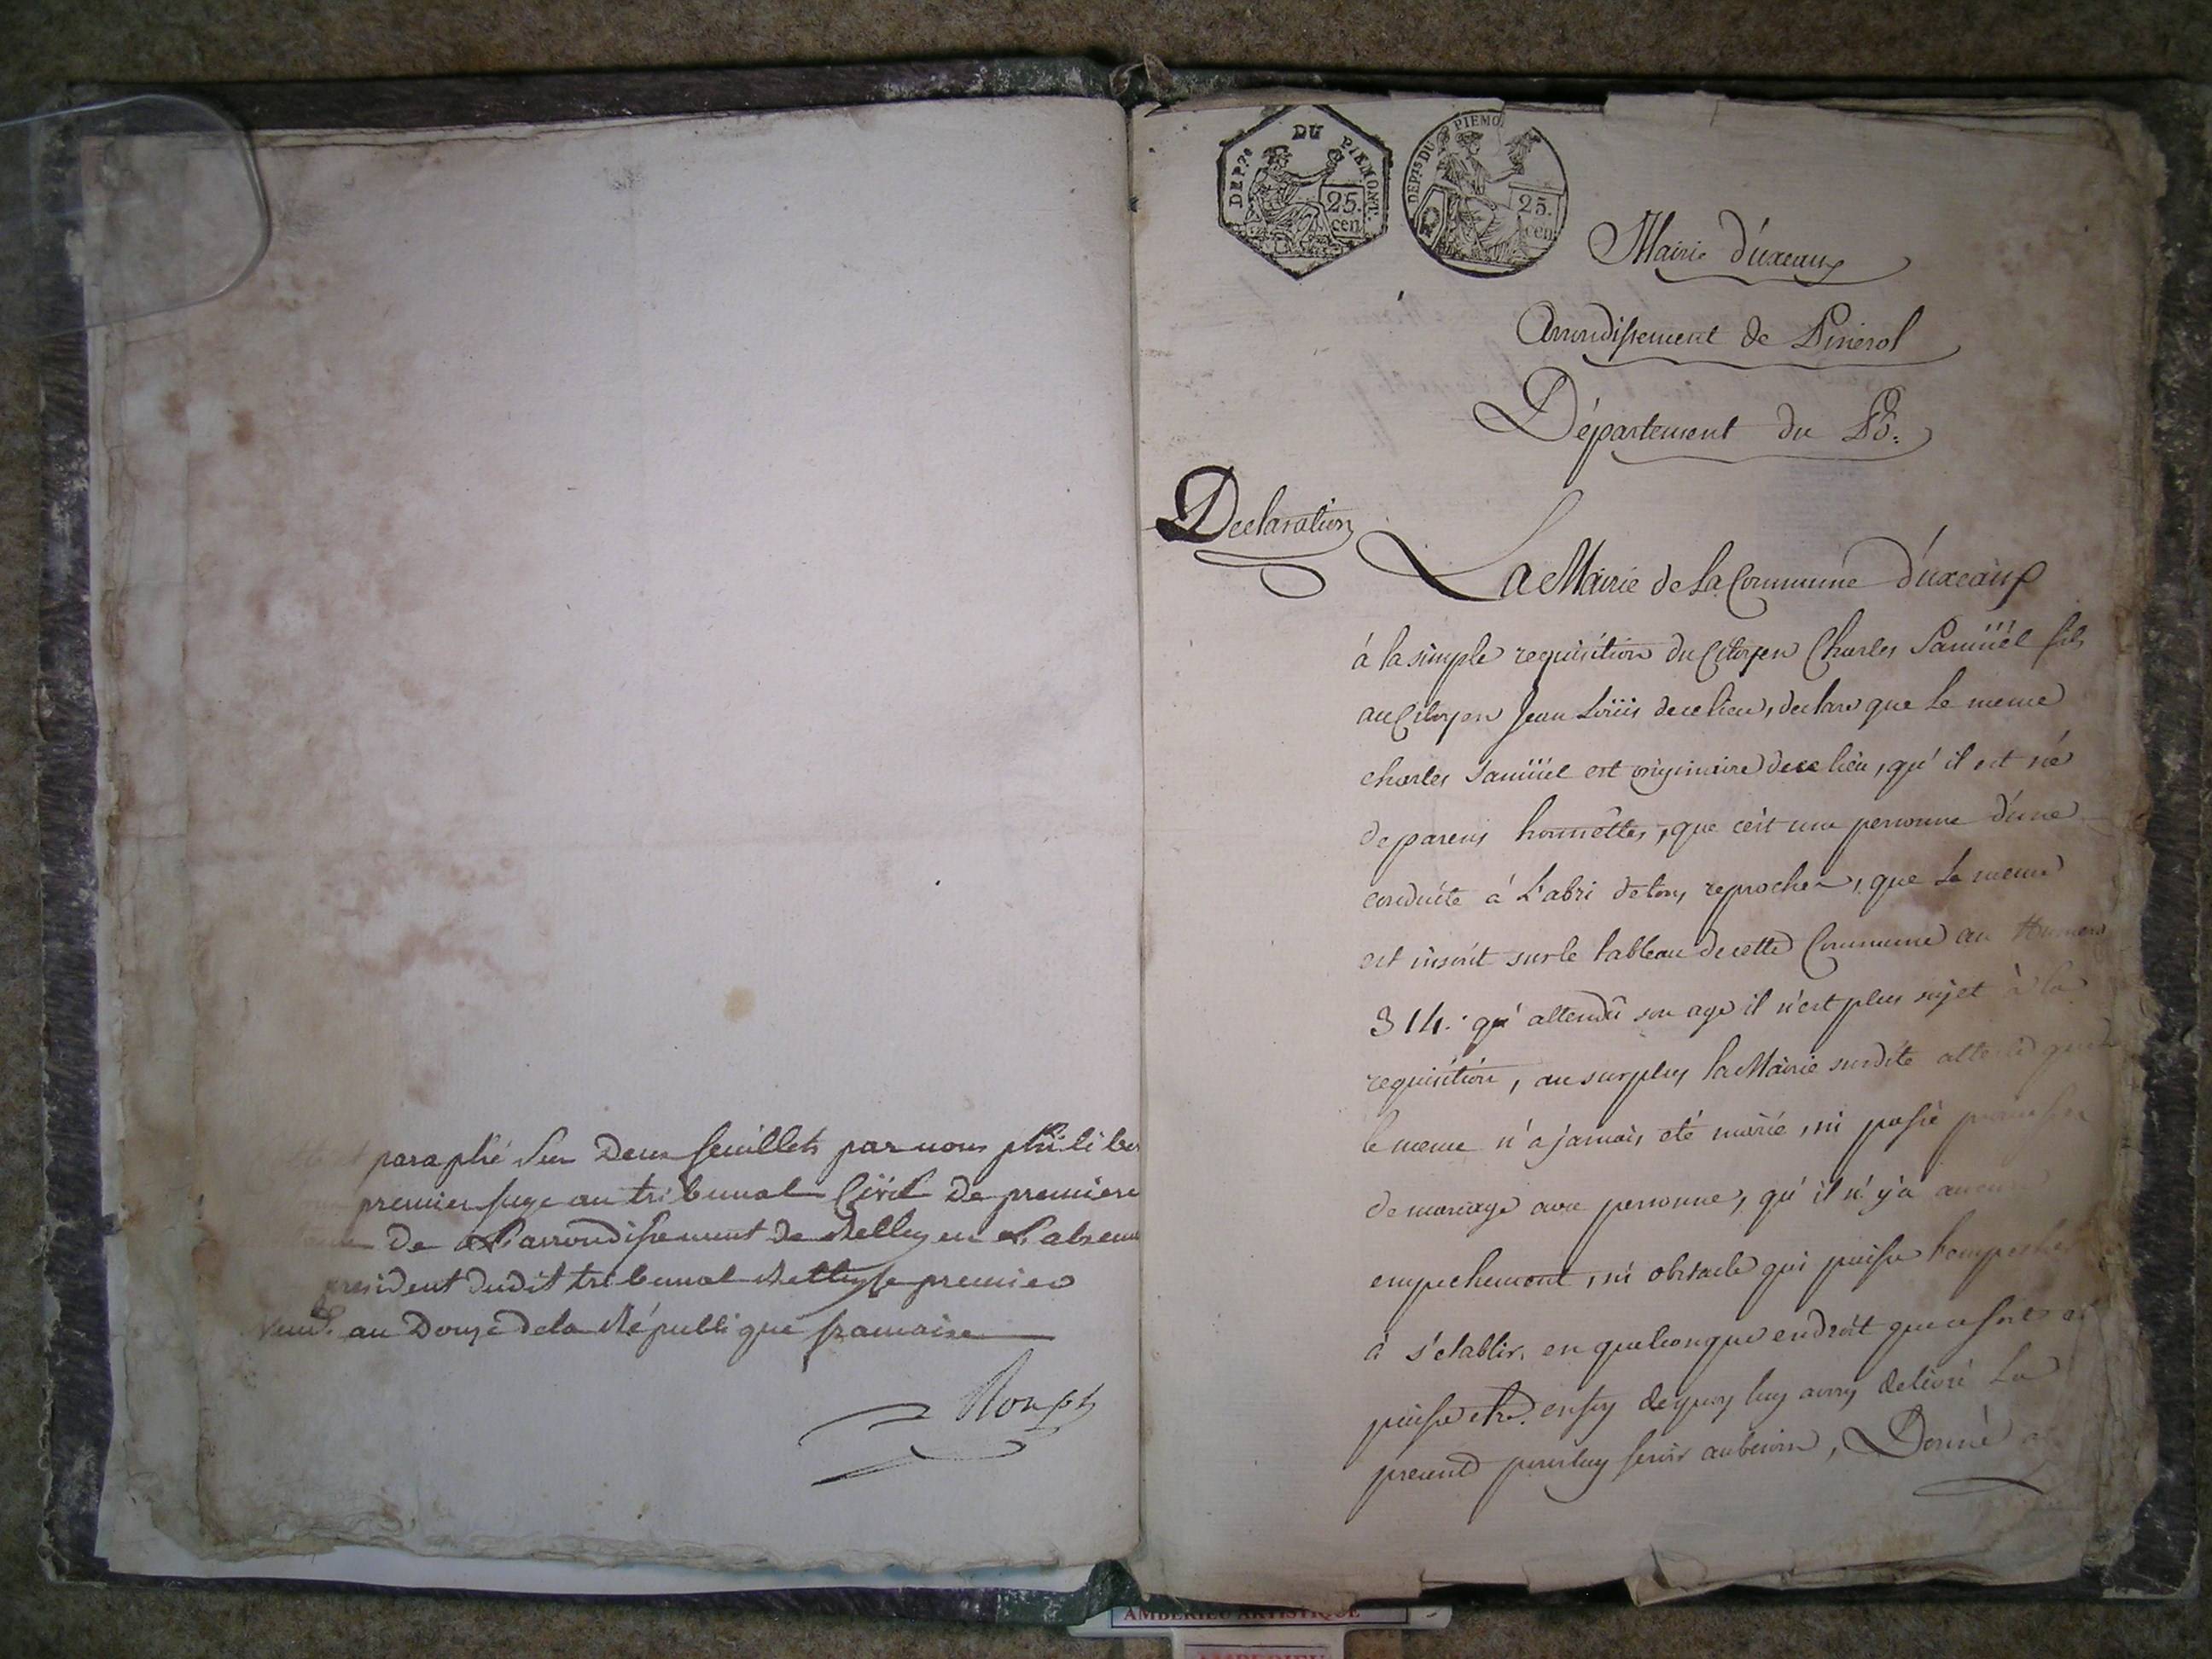 paraphé sur Deux feuillets par nous philiber
premier juge au tribunal Civil De premiere
De L'arrondissement De Belley en L'absence
president dudit tribunal Belley le premier
Vend.re an Douze De la République francaise
DEP.TS DU PIEMONT.
25.
cen
DEP.TS DU PIEMO
25.
cen
Mairie d'úxeaux
Arrondissement de Pinérol
Département du Pô.
Declaration
La Mairie de La Commune d'úxeaux
á la simple requisition du Citoyen Charles Samüel fils
au Citoyen Jean Loüis de ce lieu, declare que le meme
charles Samüel est originaire de ce lieu, qu'il est né
de parens honnêttes, que c'est une personne d'une
conduite á L'abri de tous reproches, que Le meme
est inscrit sur le tableau de cette Commune au Numero
314. qu'attendû son age il n'est plus sujet à la
requisition, au surplus la Mairie susdite atteste que
le meme n'a jamais eté marié, ni passé promesse
de mariage avec personne, qu'il n'y'a aucun
empechement, ni obstacle qui puisse l'empecher
á s'etablir en quelconque endroit que ce soit
puisse etre. en foy de quoy luy avons delivré La
present pour luy servir au besoin, Donné
AMBERIEU ARTISTIQUE
AMBERIEU